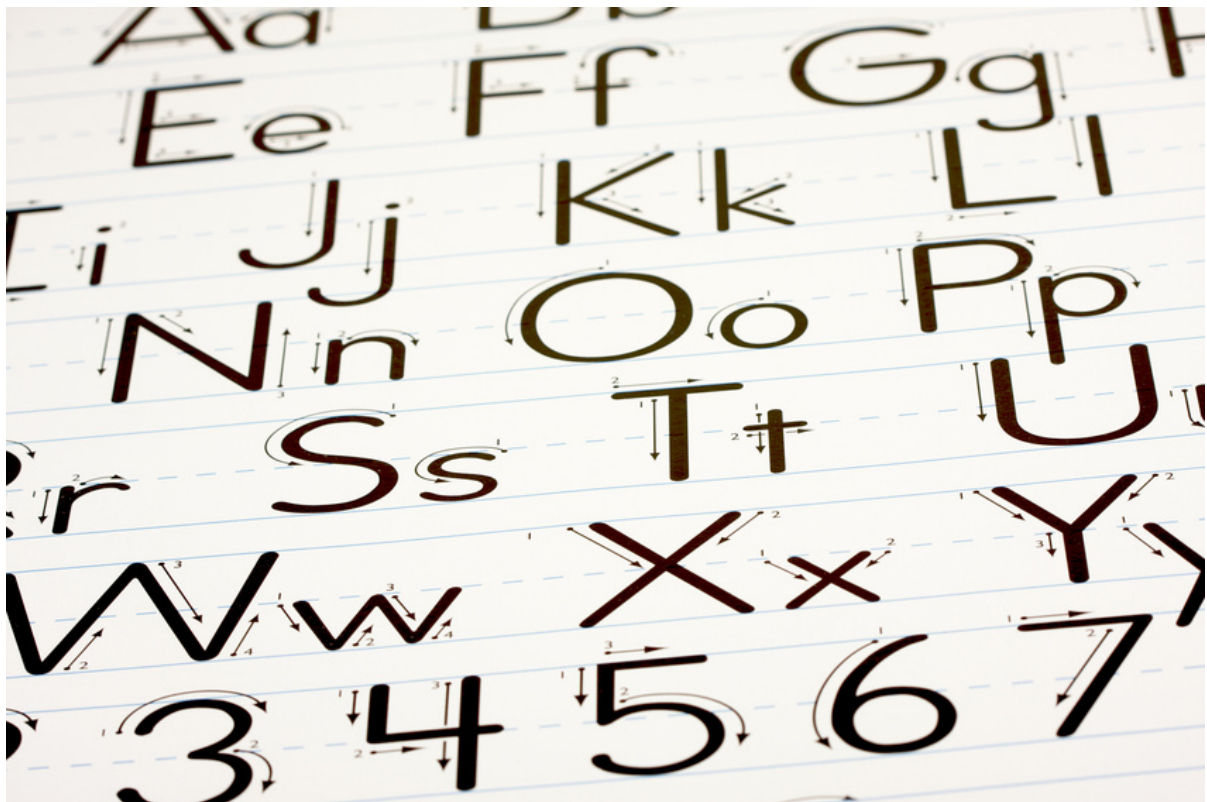 Aa Bb
Ee Ff Gg H
Ii Jj Kk Ll
Nn Oo Pp
Rr Ss Tt Uu
Ww Xx Yy
3 4 5 6 7